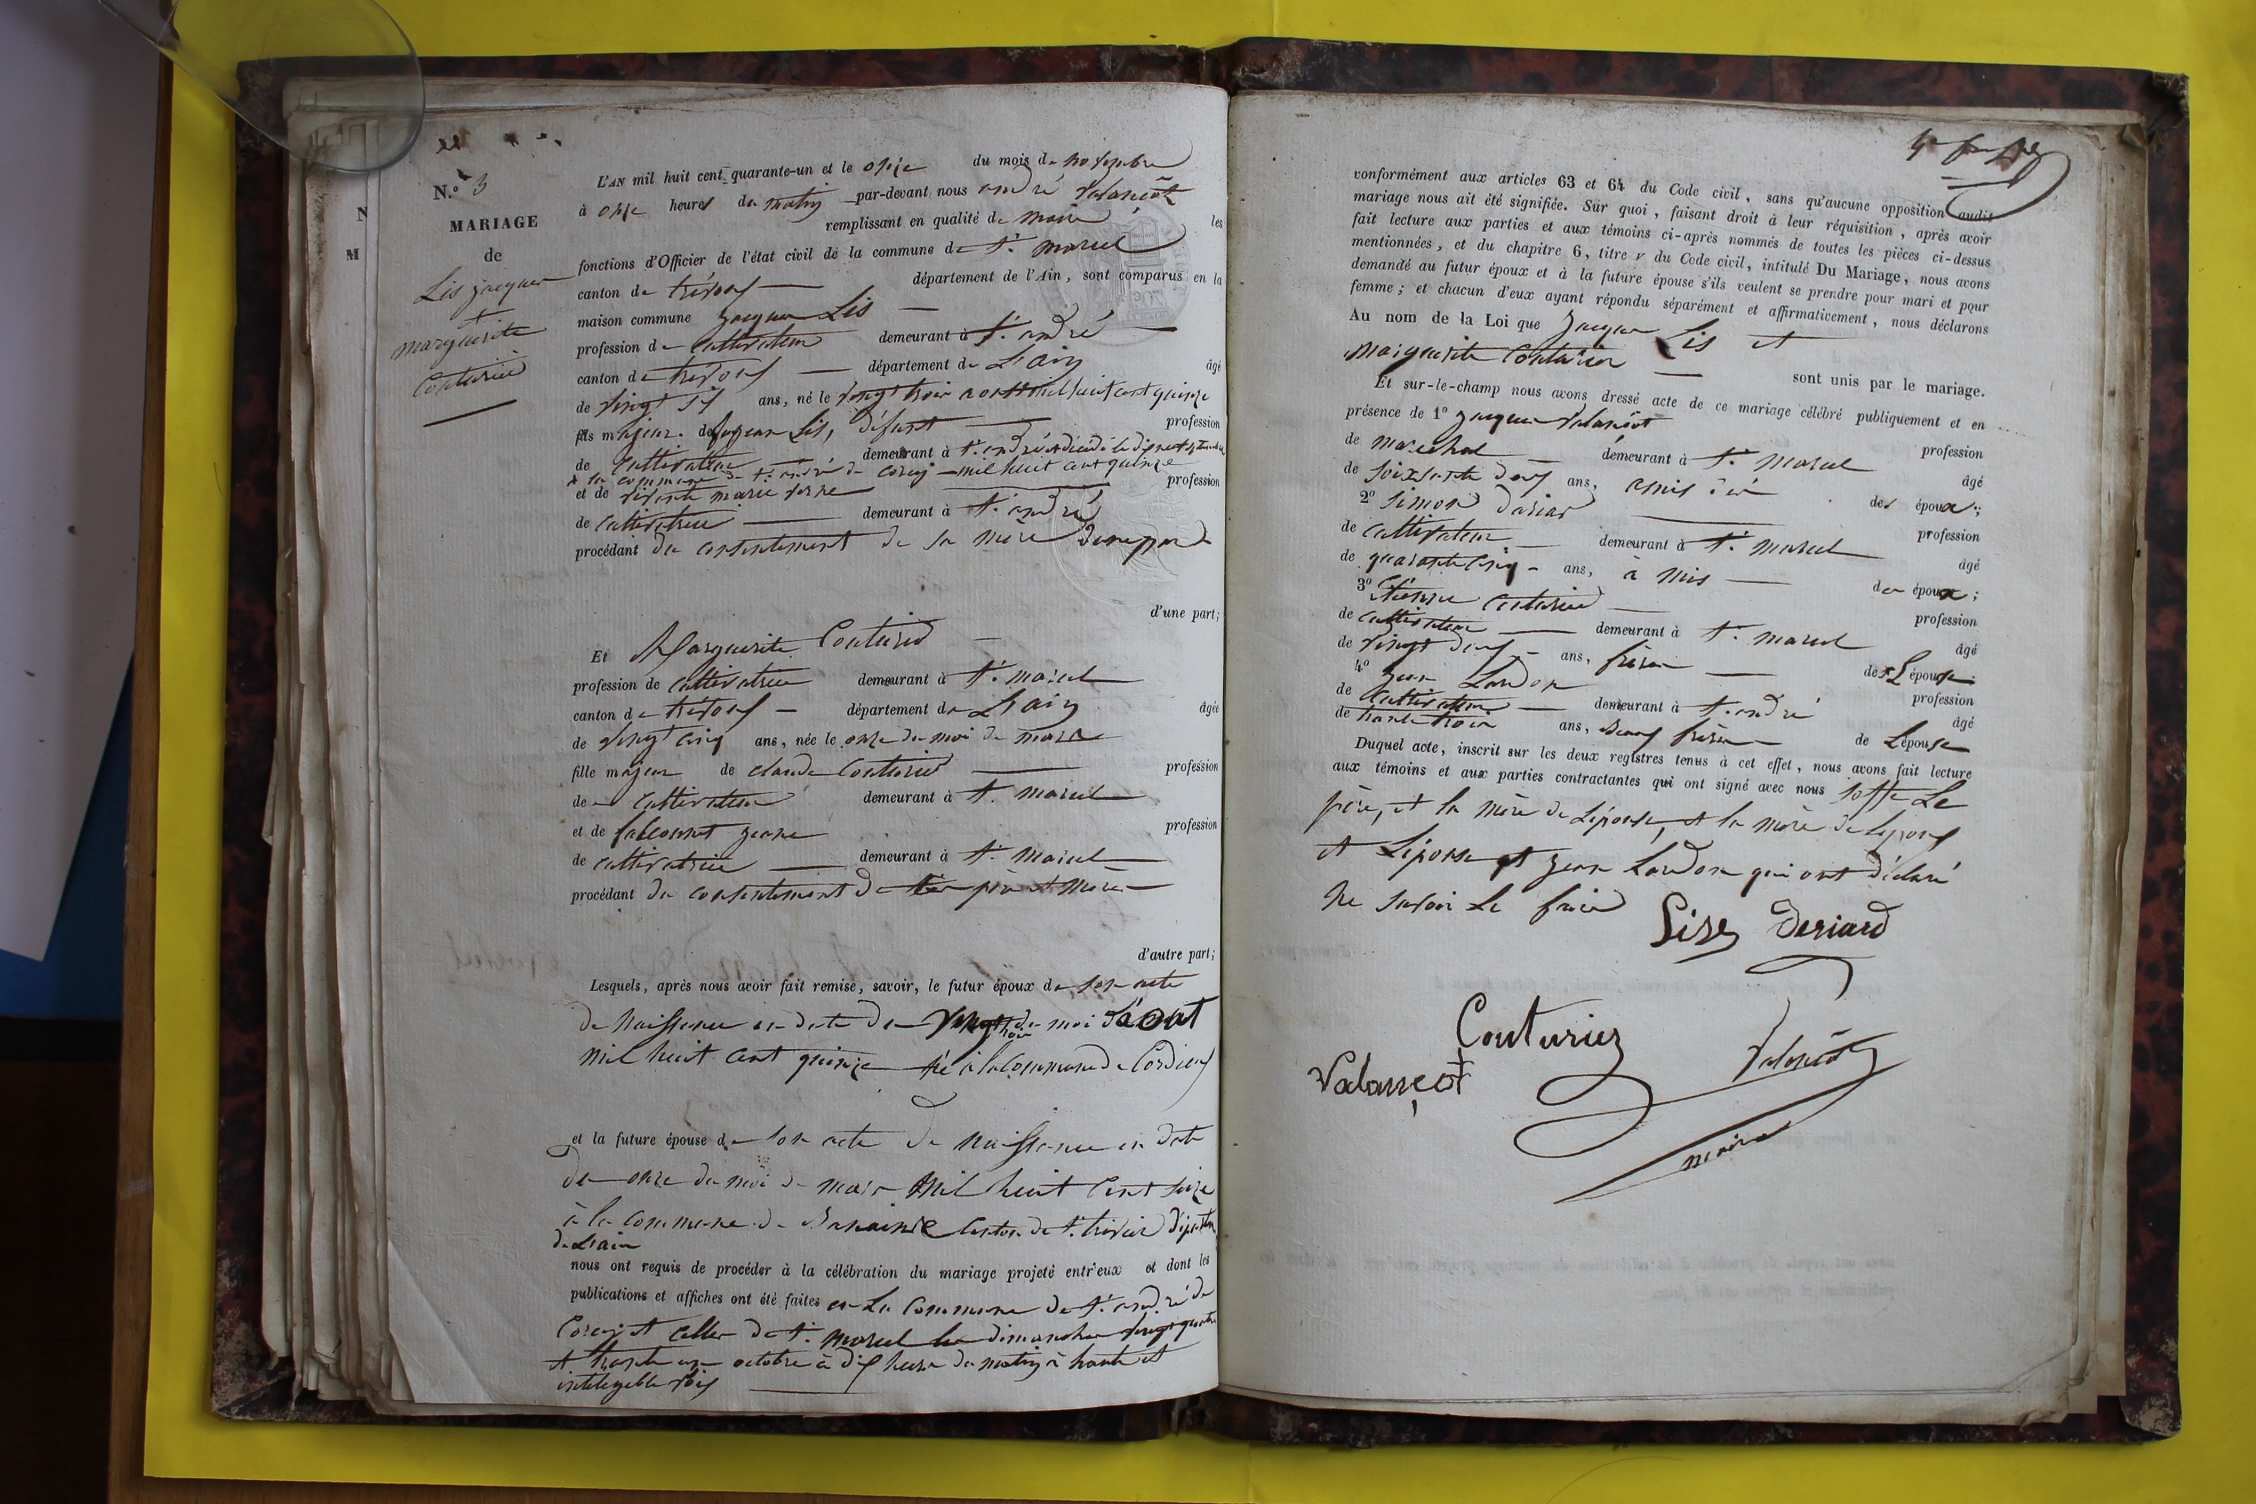 N.º 3
MARIAGE
de
Lis jacques
et
marguerite
Couturier
N
M
L'AN mil huit cent quarante-un et le onze du mois de novembre
à onze heures du matin par-devant nous andré Valançot
remplissant en qualité de maire les
fonctions d'Officier de l'état civil de la commune de st. marcel
canton de trévoux département de l'Ain, sont comparus en la
maison commune jacques Lis
profession de Cultivateur demeurant à st. andré
canton de trévoux département de L'ain âgé
de vingt six ans, né le vingt trois aout mil huit cent quinze
fils majeur de Lis, défunt profession
de Cultivateur demeurant à st. andré décédé le dix neuf
à la commune de st. andré de corcy mil huit cent quinze
et de vivante marie profession
de cultivatrice demeurant à st. andré
procédant du consentement de sa mère
d'une part;
Et Marguerite Couturier
profession de cultivatrice demeurant à st. marcel
canton de trévoux département de L'ain âgée
de vingt cinq ans, née le onze du moi de mars
fille majeur de claude Couturier profession
de cultivateur demeurant à st. marcel
et de falconnet jeane profession
de cultivatrice demeurant à st. marcel
procédant du consentement de père et mère
d'autre part;
Lesquels, après nous avoir fait remise, savoir, le futur époux de son acte
de naissance en date de vingt trois du moi d'aout
mil huit cent quinze né à la Commune de Cordieux
et la future épouse de son acte de naissance en date
du onze du moi de mars mil huit cent seize
à la commune de canton de st. trivier départ
de L'ain
nous ont requis de procéder à la célébration du mariage projeté entr'eux et dont les
publications et affiches ont été faites en La Commune de st. andré de
Corcy et celle de st. marcel les dimanches vingt quatre
et trente un octobre à dix heures du matin à haute et
inteleigible voix
conformément aux articles 63 et 64 du Code civil, sans qu'aucune opposition audit
mariage nous ait été signifiée. Sur quoi, faisant droit à leur réquisition, après avoir
fait lecture aux parties et aux témoins ci-après nommés de toutes les pièces ci-dessus
mentionnées, et du chapitre 6, titre v du Code civil, intitulé Du Mariage, nous avons
demandé au futur époux et à la future épouse s'ils veulent se prendre pour mari et pour
femme; et chacun d'eux ayant répondu séparément et affirmativement, nous déclarons
Au nom de la Loi que Jacques Lis et
Marguerite Couturier sont unis par le mariage.
Et sur-le-champ nous avons dressé acte de ce mariage célébré publiquement et en
présence de 1º jacques Valançot profession
de marechal demeurant à st. marcel âgé
de soixante deux ans, amis des époux;
2º simon profession
de cultivateur demeurant à st. marcel âgé
de quarante cinq ans, amis des époux;
3º étienne couturier profession
de cultivateur demeurant à st. marcel âgé
de vingt deux ans, frère de L'épouse
4º jean Landon profession
de cultivateur demeurant à st. andré âgé
de trente trois ans, beau frère de L'épouse
Duquel acte, inscrit sur les deux registres tenus à cet effet, nous avons fait lecture
aux témoins et aux parties contractantes qui ont signé avec nous Le
père, et la mère de L'épouse, et la mère de L'époux
et L'épouse et jean Landon qui ont déclaré
ne savoir Le faire
Lise Deriard
Couturier
Valançot Valançot
maire